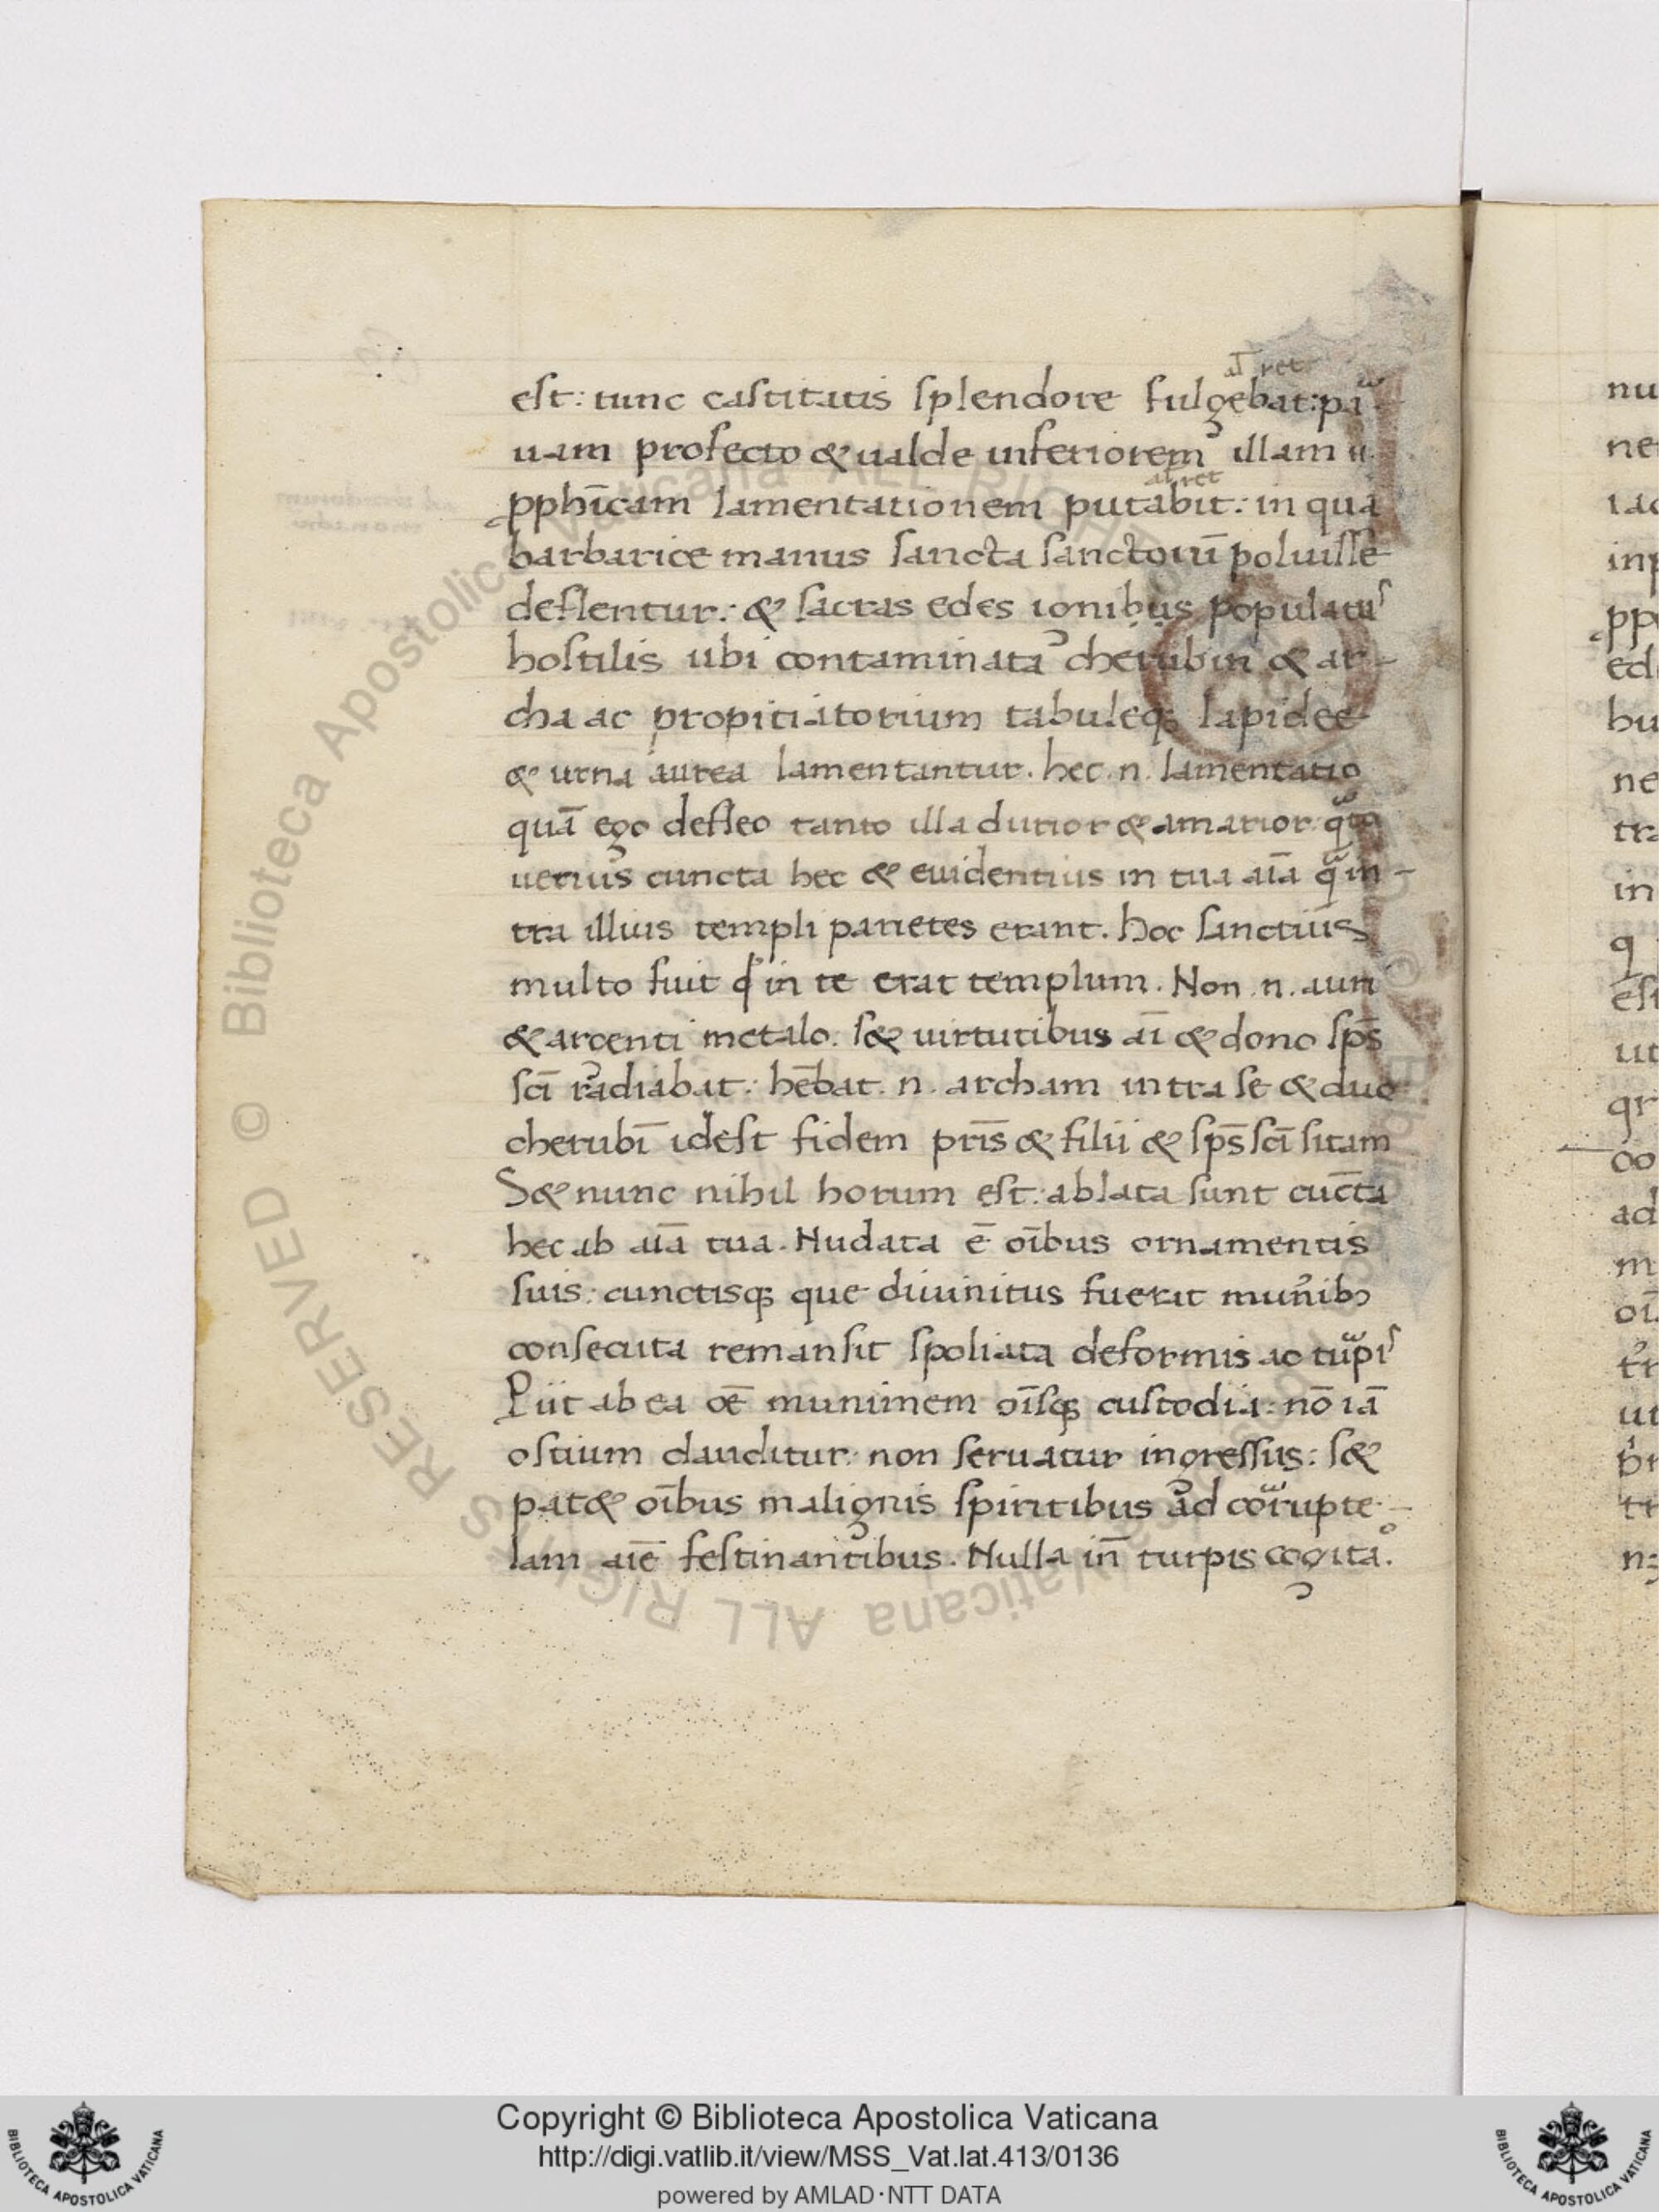 al ret
est: tunc castitatis splendore fulgebat: pa
uam profecto & ualde inferiorem illam
al ret
pphīcam lamentationem putabit: in qua
barbarice manus sancta sanctoꝝ̄ poluisse
deflentur: & sacras edes ignibus populatur
hostilis ubi contaminata cherubin & ar-
cha ac propitiatorium tabuleqꝫ lapidee
& urna aurea lamentantur. hec .n. lamentatio
quā ego defleo tanto illa durior & amarior: qͣto
uerius cuncta hec & euidentius in tua aīa qͣ in-
tra illius templi parietes erant. Hoc sanctius
multo fuit qd in te erat templum. Non .n. auri
& argenti metalo. s& uirtutibus aī & dono sps̄
scī radiabat: hēbat .n. archam intra se & duo
cherubī idest fidem pr̄is & filii & sps̄ scī sitam
S& nunc nihil horum est: ablata sunt cūcta
hec ab aīa tua. Nudata ē oībus ornamentis
suis: cunctisqꝫ que diuinitus fuerat munibꝫ
consecuta remansit spoliata deformis ac turpis
Piit ab ea oē munimem oīsqꝫ custodia: nō iā
ostium clauditur: non seruatur ingressus: s&
pat& oībus malignis spiritibus ad corrupte-
lam aīe festinantibus. Nulla iñ turpis cogita.
© Biblioteca Apostolica Vaticana ALL RIGHTS RESERVED
nu
ne
iac
inp
pp
ed
bu
ne
tr
in
q
est
ut
qr
co
ad
m
oī
tr
ut
br
tr
n
Copyright © Biblioteca Apostolica Vaticana
http://digi.vatlib.it/view/MSS_Vat.lat.413/0136
powered by AMLAD·NTT DATA
BIBLIOTECA APOSTOLICA VATICANA
BIBLIOTECA APOSTOLICA VATICANA